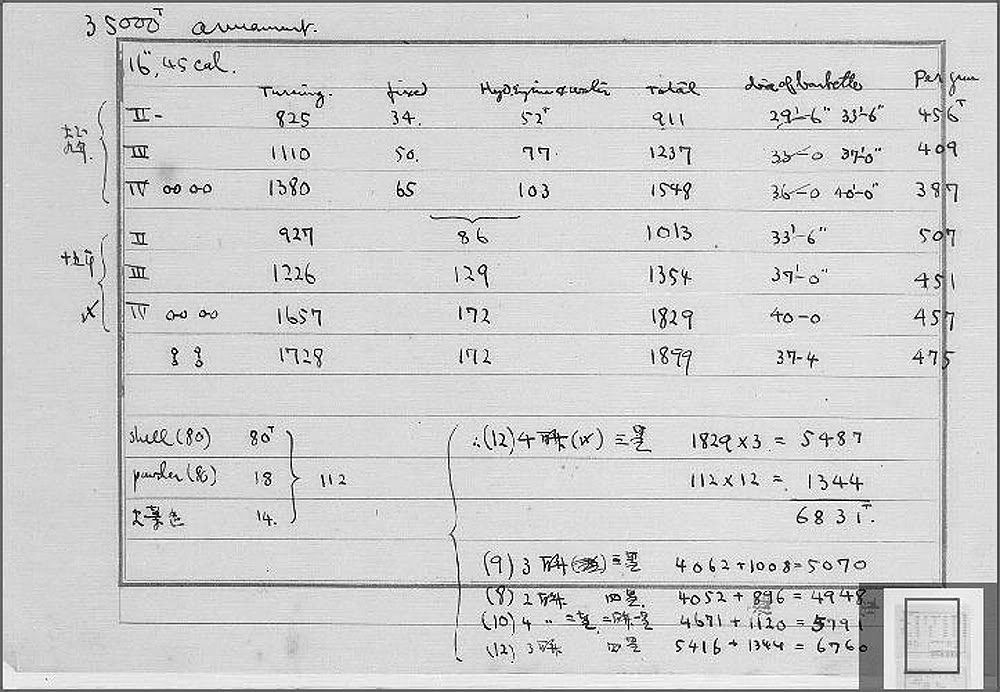 35000T armament.
16", 45 cal.
Turning. fixed Hyd Engine & water Total dia of barbette Per gun
II - 825 34. 52T 911 29'-6" 33'-6" 456T
III 1110 50. 77. 1237 33-0 37'-0" 409
IV oo oo 1380 65 103 1548 36-0 40'-0" 387
II 927 86 1013 33'-6" 507
III 1226 129 1354 37'-0" 451
IV oo oo 1657 172 1829 40-0 457
8 8 1728 172 1899 37-4 475
shell (80) 80T
powder (80) 18 112
火薬 14.
∴(12) 4 聯 三基 1829 x 3 = 5487
112 x 12 = 1344
6831T.
(9) 3 聯 三基 4062 + 1008 = 5070
(8) 2 聯 四基. 4052 + 896 = 4948
(10) 4 〃 4671 + 1120 = 5791
(12) 3 聯 四基 5416 + 1344 = 6760